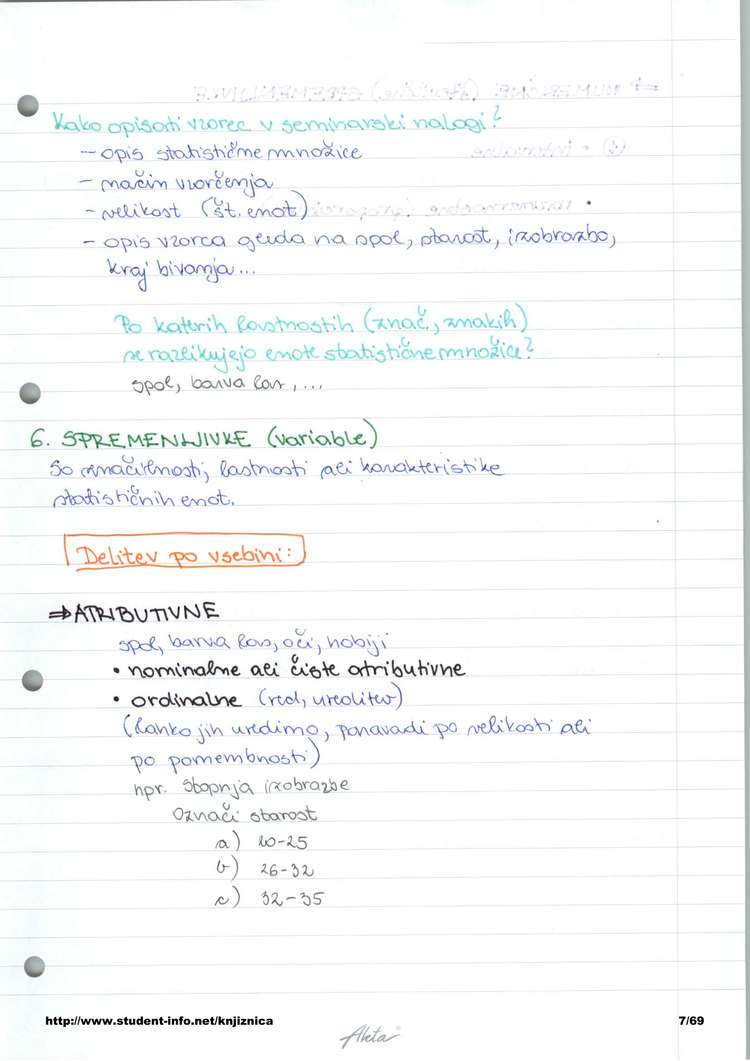 Kako opisati vzorec v seminarski nalogi?
- opis statistične množice
- način vzorčenja
- velikost (št. enot)
- opis vzorca glede na spol, starost, izobrazbo,
kraj bivanja...
Po katerih lastnostih (znač., znakih)
se razlikujejo enote statistične množice?
spol, barva las, ...
6. SPREMENLJIVKE (variable)
So značilnosti, lastnosti ali karakteristike
statističnih enot.
Delitev po vsebini:
⇒ ATRIBUTIVNE
spol, barva las, oči, hobiji
• nominalne ali čiste atributivne
• ordinalne (red, ureditev)
(lahko jih uredimo, ponavadi po velikosti ali
po pomembnosti)
npr. stopnja izobrazbe
Označi starost
a) 20-25
b) 26-32
c) 32-35
http://www.student-info.net/knjiznica 7/69
Akta